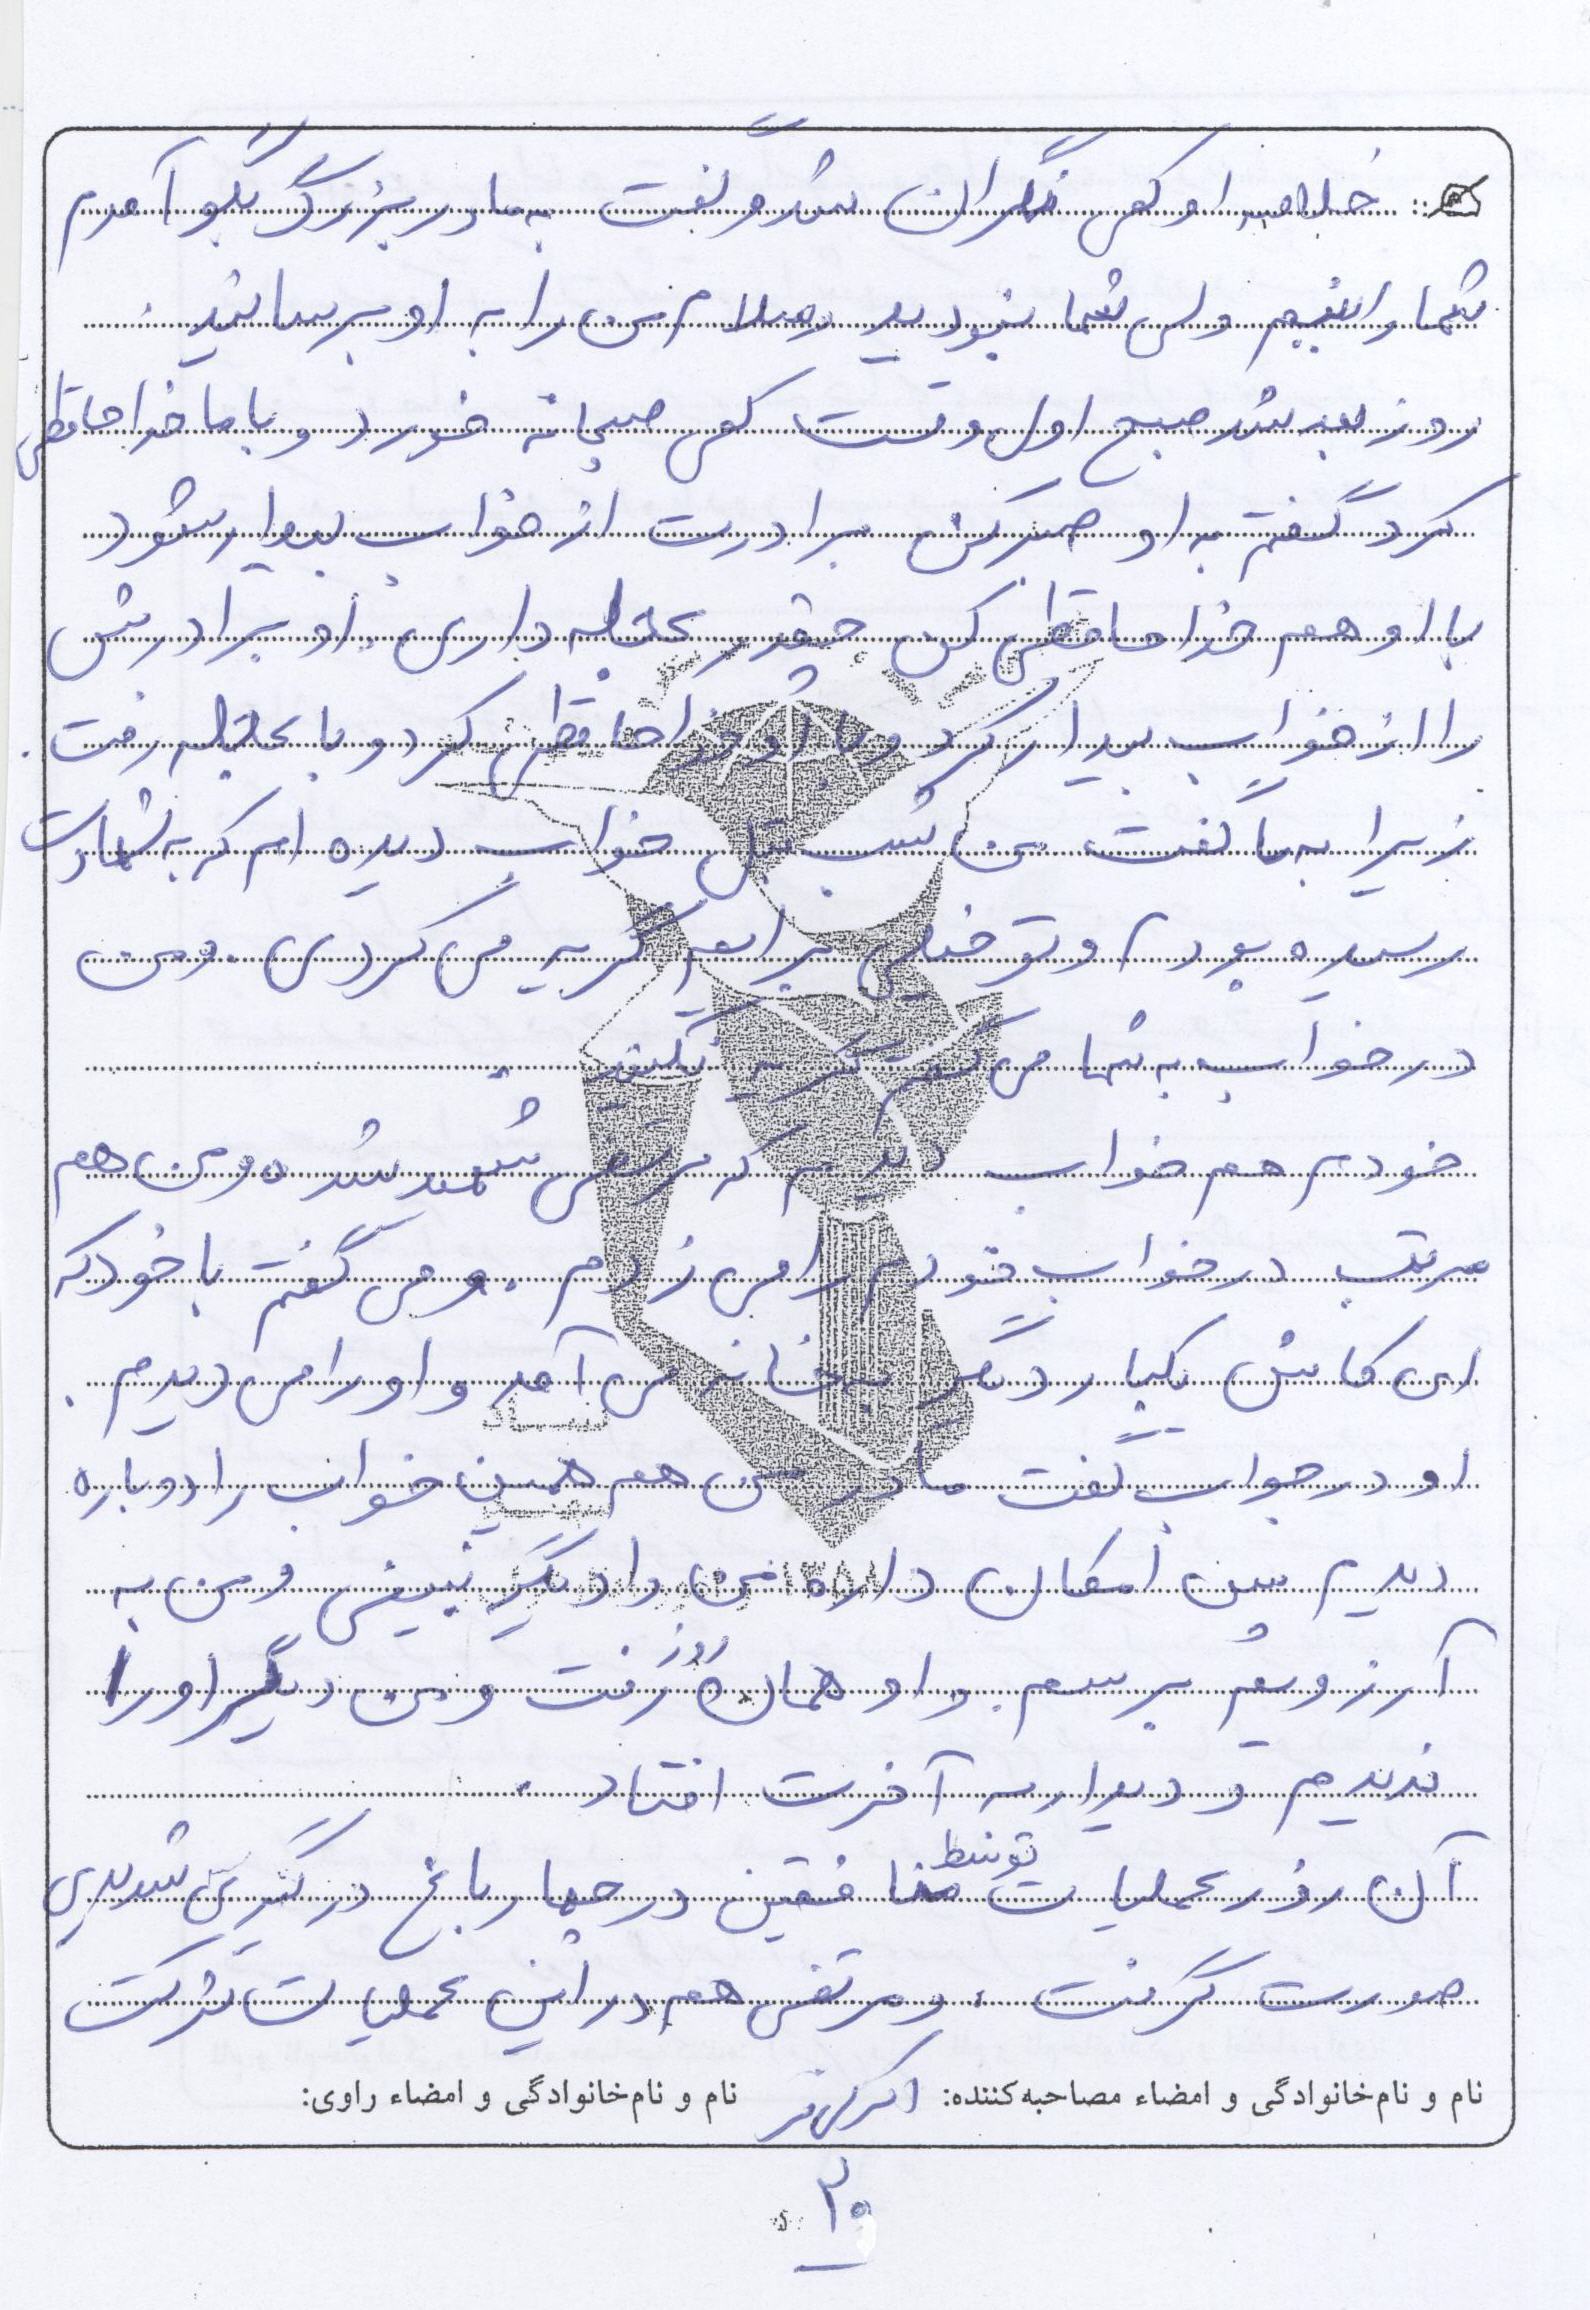 خلاصه او کمی نگران شد و گفت به مادر بزرگ بگو آمدم
شما را ببینم ولی شما نبودید و سلام من را به او برسانید.
روز بعد شد صبح اول وقت کمی صبحانه خورد و با ما خداحافظی
کرد گفتم به او صبر کن برادرت از خواب بیدار بشود
با او هم خداحافظی کن چقدر عجله داری. او برادرش
را از خواب بیدار کرد و با او خداحافظی کرد و با عجله رفت.
زیرا به ما گفت من شب قبل خواب دیده ام که به شهادت
رسیده بودم و تو خیلی برایم گریه می کردی. و من
در خواب به شما می گفتم گریه نکنید.
خودم هم خواب دیدم که مرتضی شهید شده و من هم
مرتب در خواب خودم را می زدم. و می گفتم با خود که
ای کاش یکبار دیگر به خانه می آمد و او را می دیدم.
او در جواب گفت مادر من هم همین خواب را دوباره
دیدم پس امکان داره من را دیگر نبینی و من به
آرزویم برسم. و او همان روز رفت و من دیگر او را
ندیدم و دیدار به آخرت افتاد.
آن روز عملیات توسط منافقین در چهارباغ درگیری شدیدی
صورت گرفت، و مرتضی هم در این عملیات شرکت
نام و نام‌خانوادگی و امضاء مصاحبه‌کننده: نام و نام‌خانوادگی و امضاء راوی:
۲۰